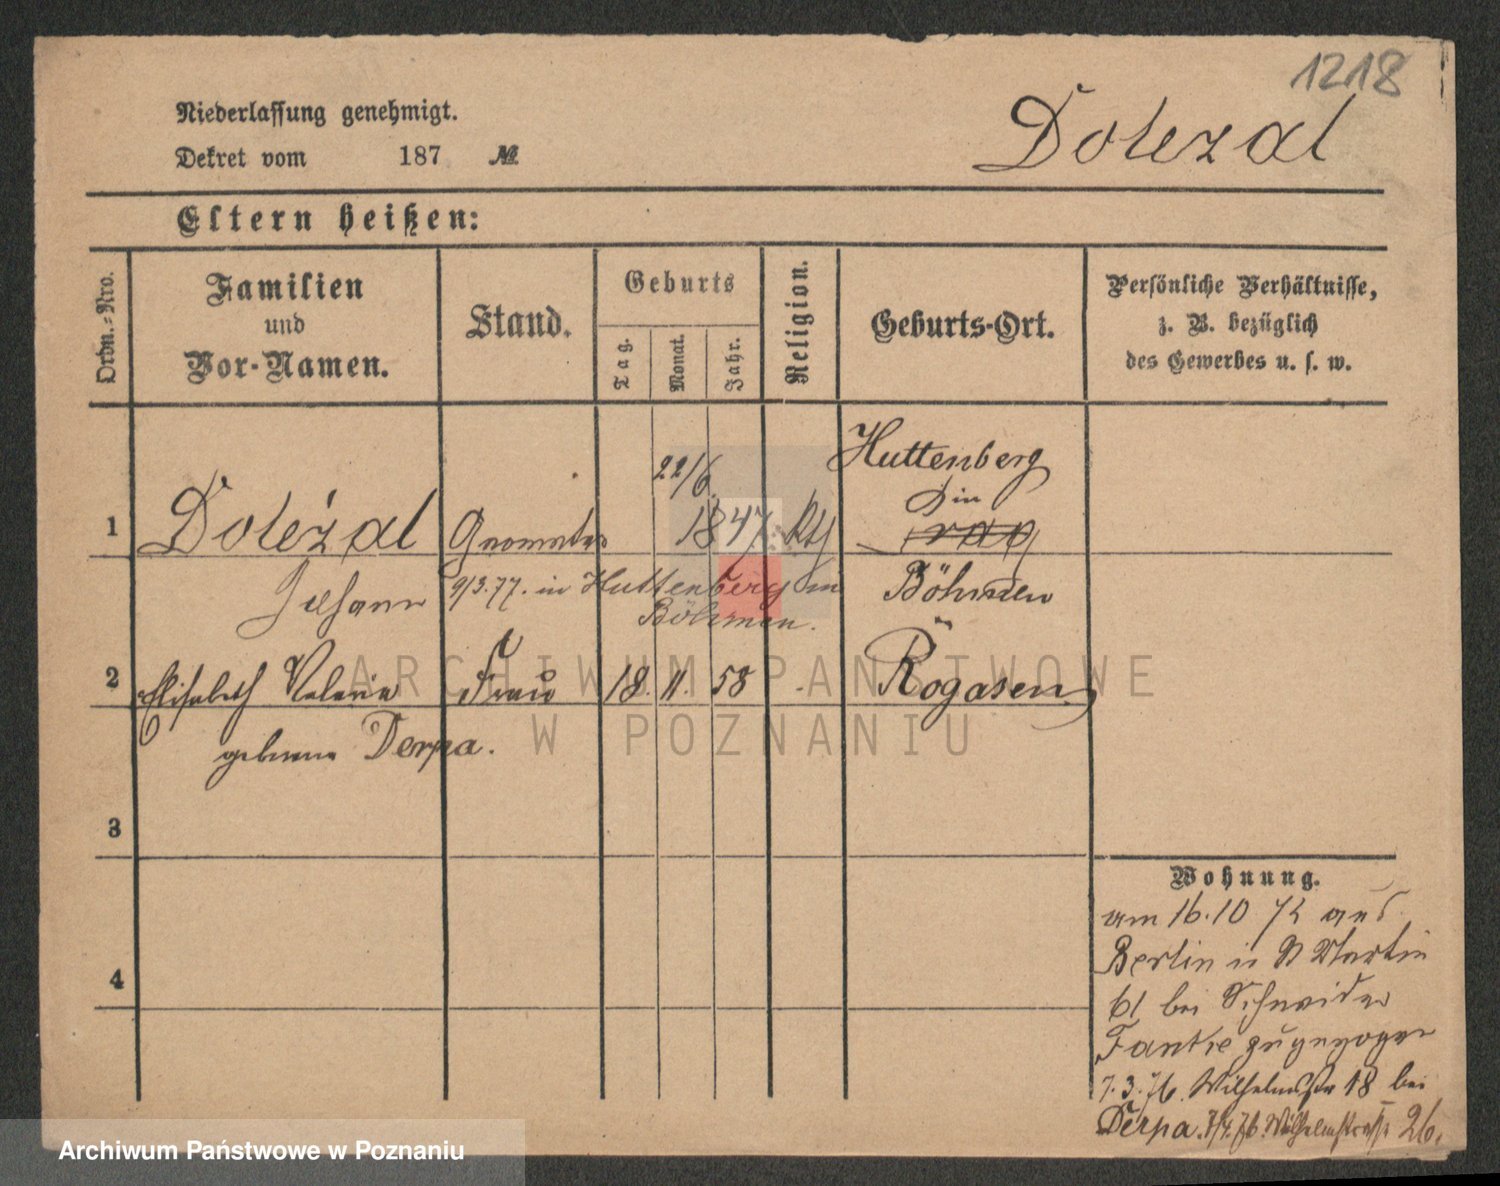 1218
Niederlassung genehmigt.
Dekret vom 187 №
Dolezal
Eltern heißen:
Ordn.-Nro.
Familien
und
Vor-Namen.
Stand.
Geburts
Tag.
Monat.
Jahr.
Religion.
Geburts-Ort.
Persönliche Verhältnisse,
z. B. bezüglich
des Gewerbes u. s. w.
1
Doležal
Johann
Geometer
22/6.
1847
kth
Huttenberg
in
Böhmen
9/3.77. in Huttenberg in
Böhmen.
2
Elisabeth Valerie
geborene Derpa.
Frau
18. 11. 58
Rogasen.
3
4
Wohnung.
am 16.10 72 aus
Berlin in St Martin
61 bei Schneider
Fantie zugezogen
7.3.76. Wilhelmstr 18 bei
Derpa. 7/4.76. Wilhelmstraße 26.
ARCHIWUM PAŃSTWOWE
W POZNANIU
Archiwum Państwowe w Poznaniu